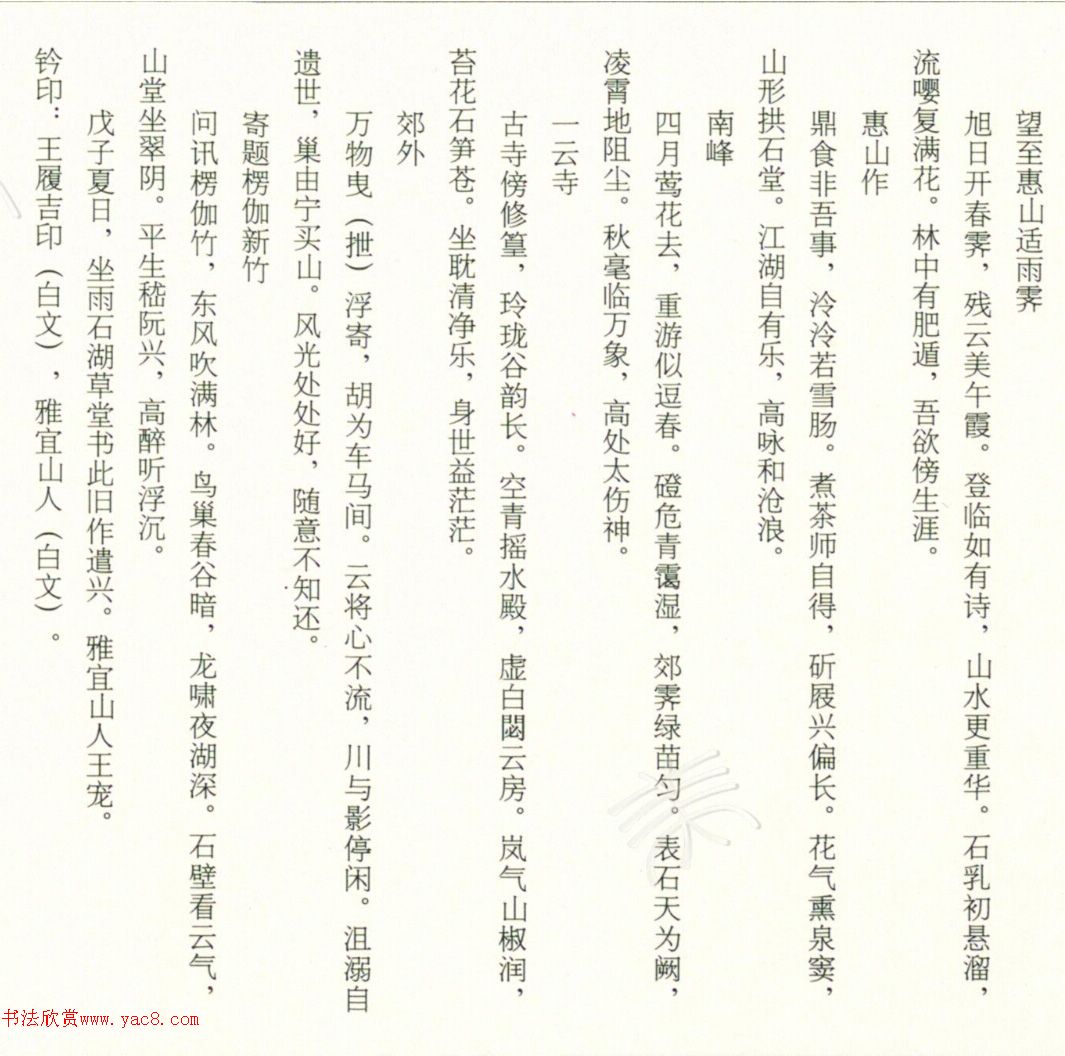 望至惠山适雨霁
旭日开春霁，残云美午霞。登临如有诗，山水更重华。石乳初悬溜，
流嘤复满花。林中有肥遁，吾欲傍生涯。
惠山作
鼎食非吾事，泠泠若雪肠。煮茶师自得，斫屐兴偏长。花气熏泉窦，
山形拱石堂。江湖自有乐，高咏和沧浪。
南峰
四月莺花去，重游似逗春。磴危青霭湿，郊霁绿苗匀。表石天为阙，
凌霄地阻尘。秋毫临万象，高处太伤神。
一云寺
古寺傍修篁，玲珑谷韵长。空青摇水殿，虚白閟云房。岚气山椒润，
苔花石笋苍。坐耽清净乐，身世益茫茫。
郊外
万物曳（抴）浮寄，胡为车马间。云将心不流，川与影停闲。沮溺自
遗世，巢由宁买山。风光处处好，随意不知还。
寄题楞伽新竹
问讯楞伽竹，东风吹满林。鸟巢春谷暗，龙啸夜湖深。石壁看云气，
山堂坐翠阴。平生嵇阮兴，高醉听浮沉。
戊子夏日，坐雨石湖草堂书此旧作遣兴。雅宜山人王宠。
钤印：王履吉印（白文），雅宜山人（白文）。
书法欣赏www.yac8.com